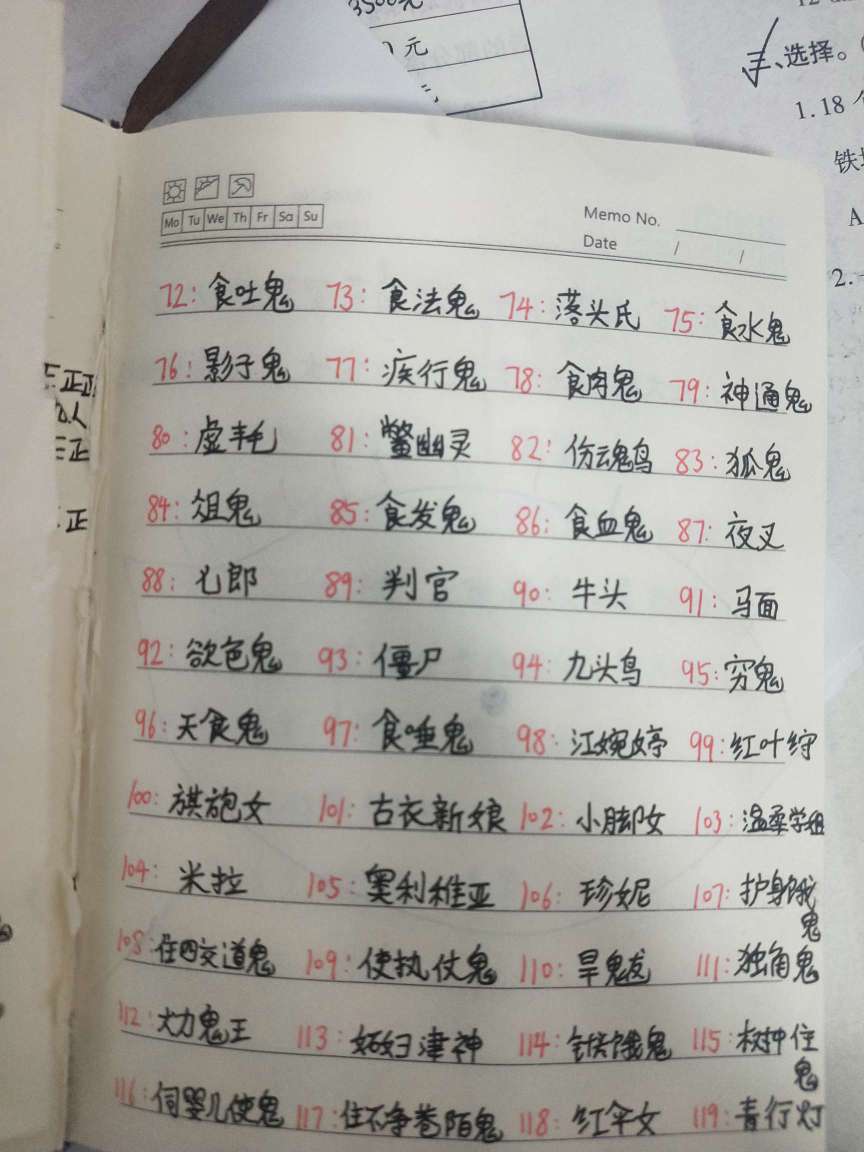 3500元
元
三、选择。
1.18个
铁
A
2.一
Mo Tu We Th Fr Sa Su
Memo No.
Date / /
72：食吐鬼 73：食法鬼 74：落头氏 75：食水鬼
76：影子鬼 77：疾行鬼 78：食肉鬼 79：神通鬼
80：虚耗 81：鳖幽灵 82：伤魂鸟 83：狐鬼
84：俎鬼 85：食发鬼 86：食血鬼 87：夜叉
88：七郎 89：判官 90：牛头 91：马面
92：欲色鬼 93：僵尸 94：九头鸟 95：穷鬼
96：天食鬼 97：食唾鬼 98：江婉婷 99：红叶狩
100：旗袍女 101：古衣新娘 102：小脚女 103：温柔学姐
104：米拉 105：奥利维亚 106：珍妮 107：护身饿鬼
108：住四交道鬼 109：使执仗鬼 110：旱魃 111：独角鬼
112：大力鬼王 113：妬妇津神 114：针饿鬼 115：树种住鬼
116：伺婴儿便鬼 117：住不净巷陌鬼 118：红伞女 119：青行灯